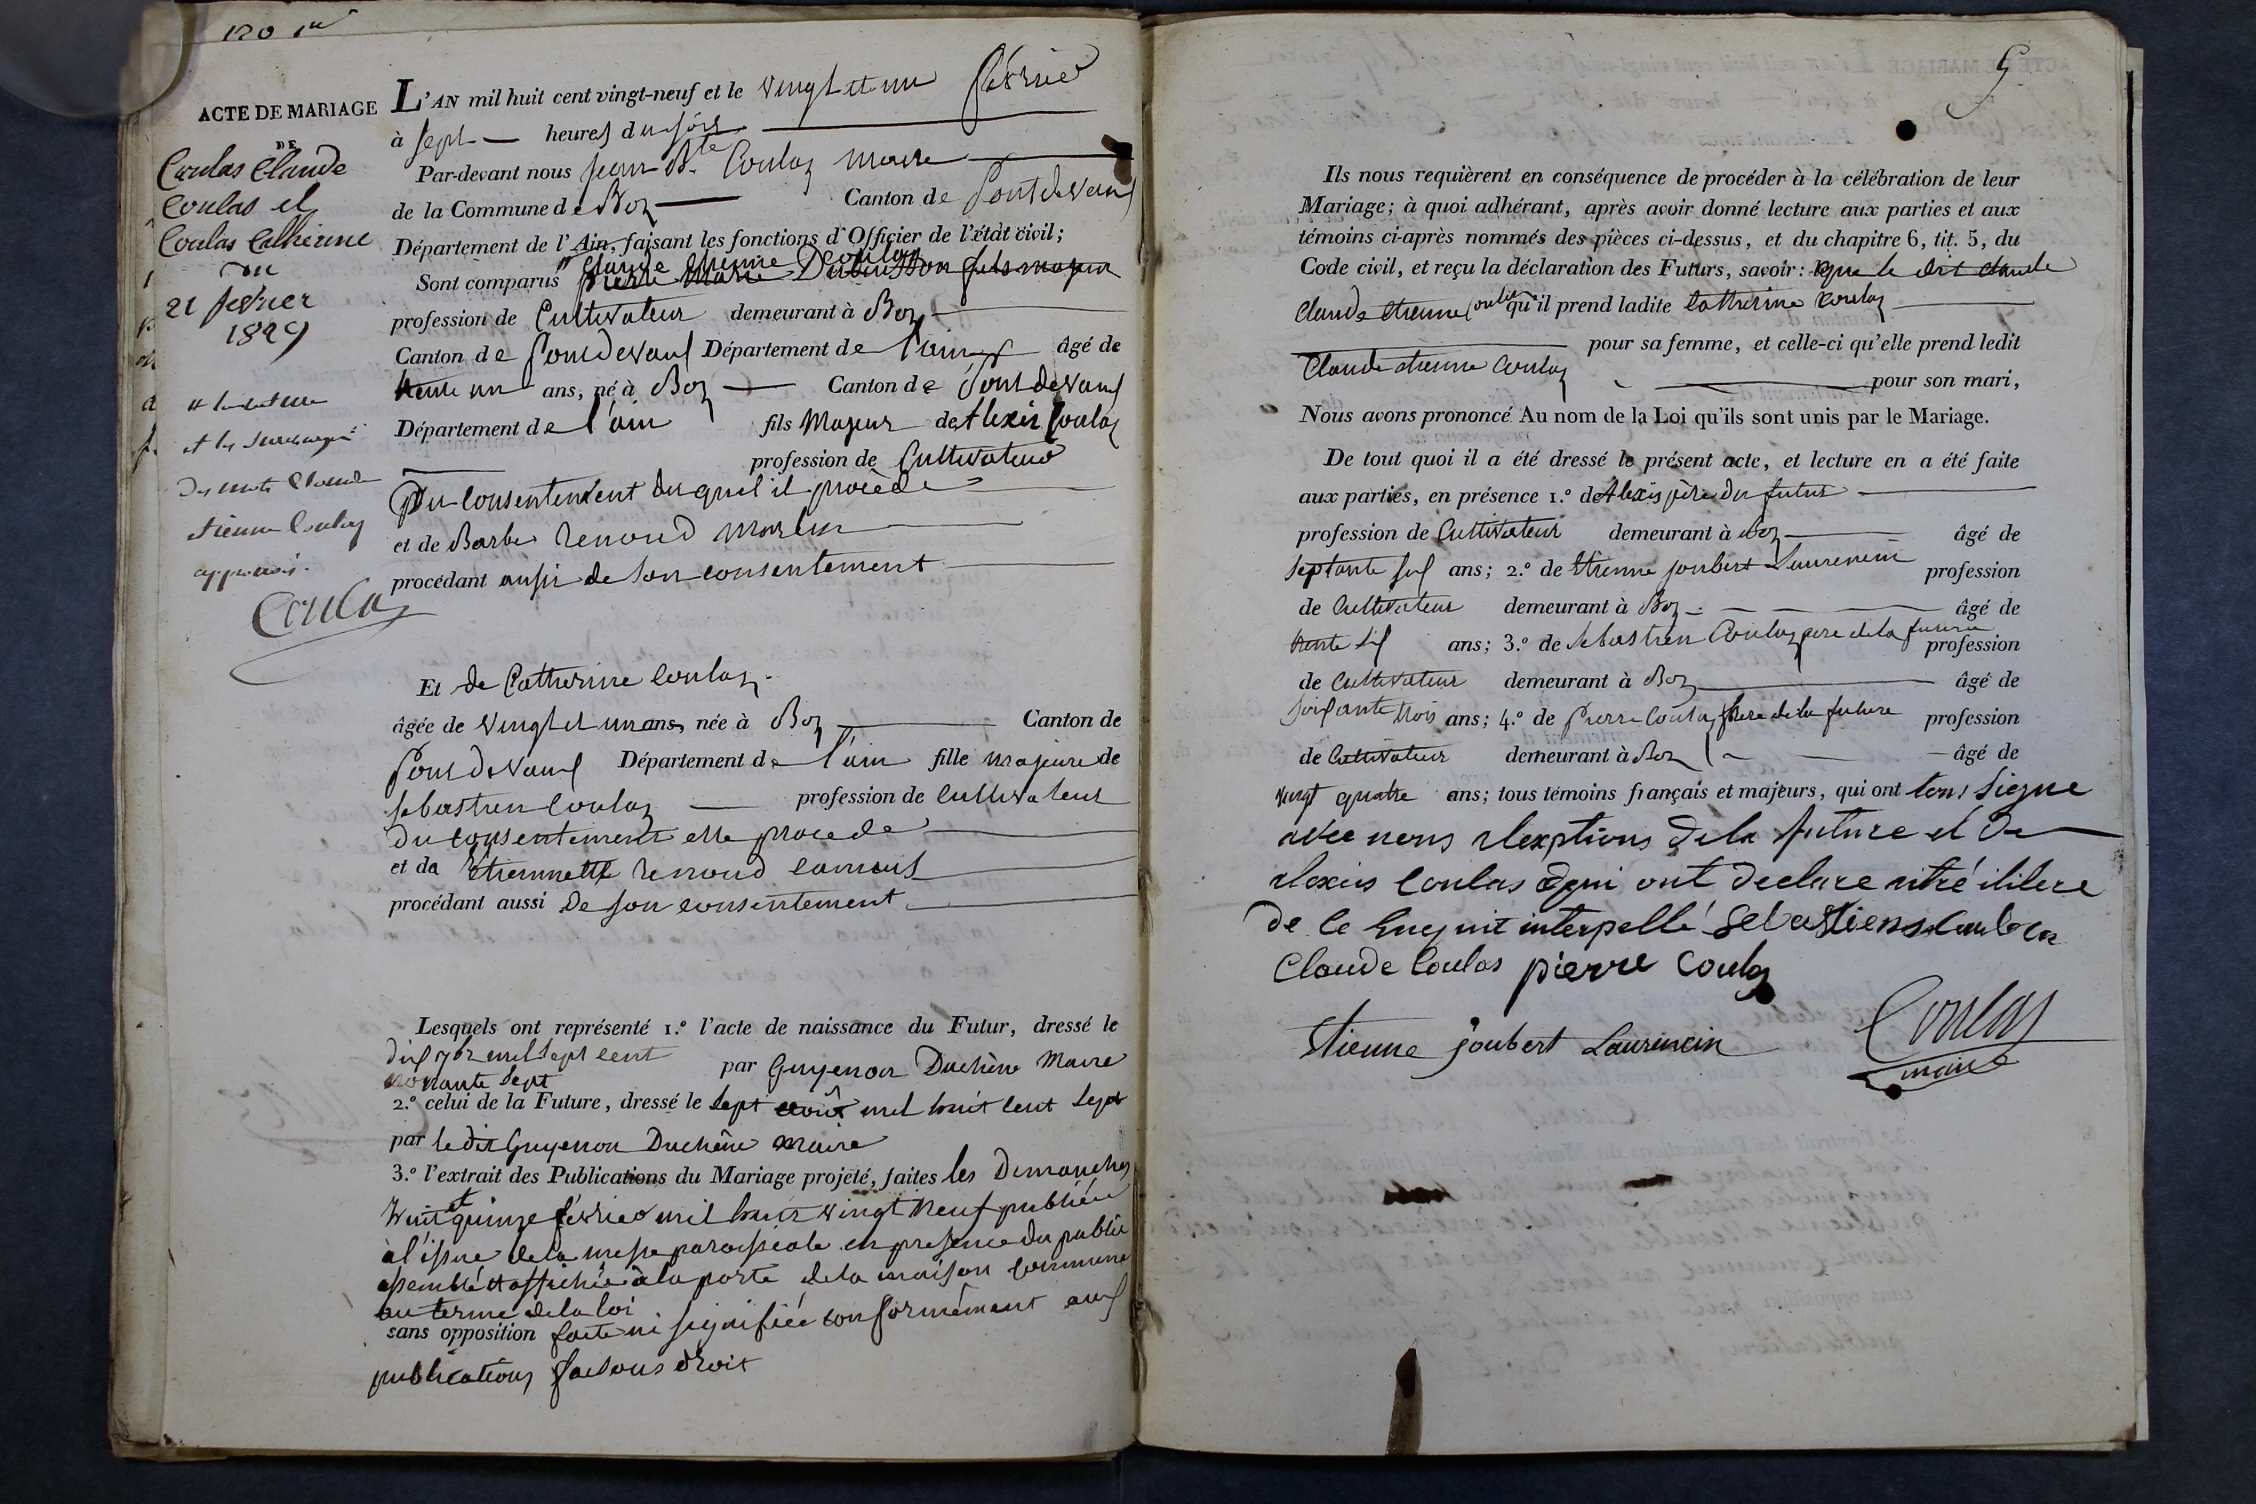 120
ACTE DE MARIAGE
DE
Coulas Claude
Coulas et
Coulas Catherine
du
21 fevrier
1829
et les surcharges
des mots Claude
etienne Coulas
approuvés.
Coulas
L'AN mil huit cent vingt-neuf et le vingt et un février
à sept heures du soir
Par-devant nous jean Bte Coulas maire
de la Commune de Boz Canton de Pontdevaux
Département de l'Ain, faisant les fonctions d'Officier de l'état civil;
Sont comparus Claude etienne Coulas
profession de Cultivateur demeurant à Boz
Canton de Pontdevaux Département de l'ain âgé de
trente un ans, né à Boz Canton de Pontdevaux
Département de l'ain fils Majeur de Alexis Coulas
profession de Cultivateur
Du Consentement duquel il procède
et de Barbe renoud morlin
procédant aussi de son consentement
Et de Catherine Coulas
âgée de vingt et un ans, née à Boz Canton de
Pontdevaux Département de l'ain fille majeure de
sebastien Coulas profession de cultivateur
du consentement elle procede
et de Etiennette renoud camus
procédant aussi de son consentement
Lesquels ont représenté 1.º l'acte de naissance du Futur, dressé le
dix 7bre mil sept cent
nonante sept par Guyenon Duchêne Maire
2.º celui de la Future, dressé le sept août mil huit cent sept
par ledit Guyenon Duchêne maire
3.º l'extrait des Publications du Mariage projeté, faites les Dimanches
huit et quinze février mil huit vingt neuf publiée
à l'issue de la messe paroissiale en presence du public
assemblé et affichée à la porte de la maison commune
au terme de la loi
sans opposition faite ni signifiée conformément aux
publications faisons droit
5
Ils nous requièrent en conséquence de procéder à la célébration de leur
Mariage; à quoi adhérant, après avoir donné lecture aux parties et aux
témoins ci-après nommés des pièces ci-dessus, et du chapitre 6, tit. 5, du
Code civil, et reçu la déclaration des Futurs, savoir: que le dit claude
Claude etienne Coulas qu'il prend ladite Catherine Coulas
pour sa femme, et celle-ci qu'elle prend ledit
Claude etienne Coulas
pour son mari,
Nous avons prononcé Au nom de la Loi qu'ils sont unis par le Mariage.
De tout quoi il a été dressé le présent acte, et lecture en a été faite
aux parties, en présence 1.º de Alexis père du futur
profession de Cultivateur demeurant à Boz âgé de
septante six ans; 2.º de Etienne joubert Laurencin profession
de Cultivateur demeurant à Boz âgé de
trente six ans; 3.º de sebastien Coulas pere de la future profession
de Cultivateur demeurant à Boz âgé de
soixante trois ans; 4.º de Pierre Coulas frere de la future profession
de Cultivateur demeurant à Boz âgé de
vingt quatre ans; tous témoins français et majeurs, qui ont tous signe
avec nous alexptions de la future et de
alexis Coulas qui ont declare
de ce enquit interpellé Sebastiens Coulas
Claude Coulas pierre Coulas
Etienne joubert Laurencin
Coulas
maire